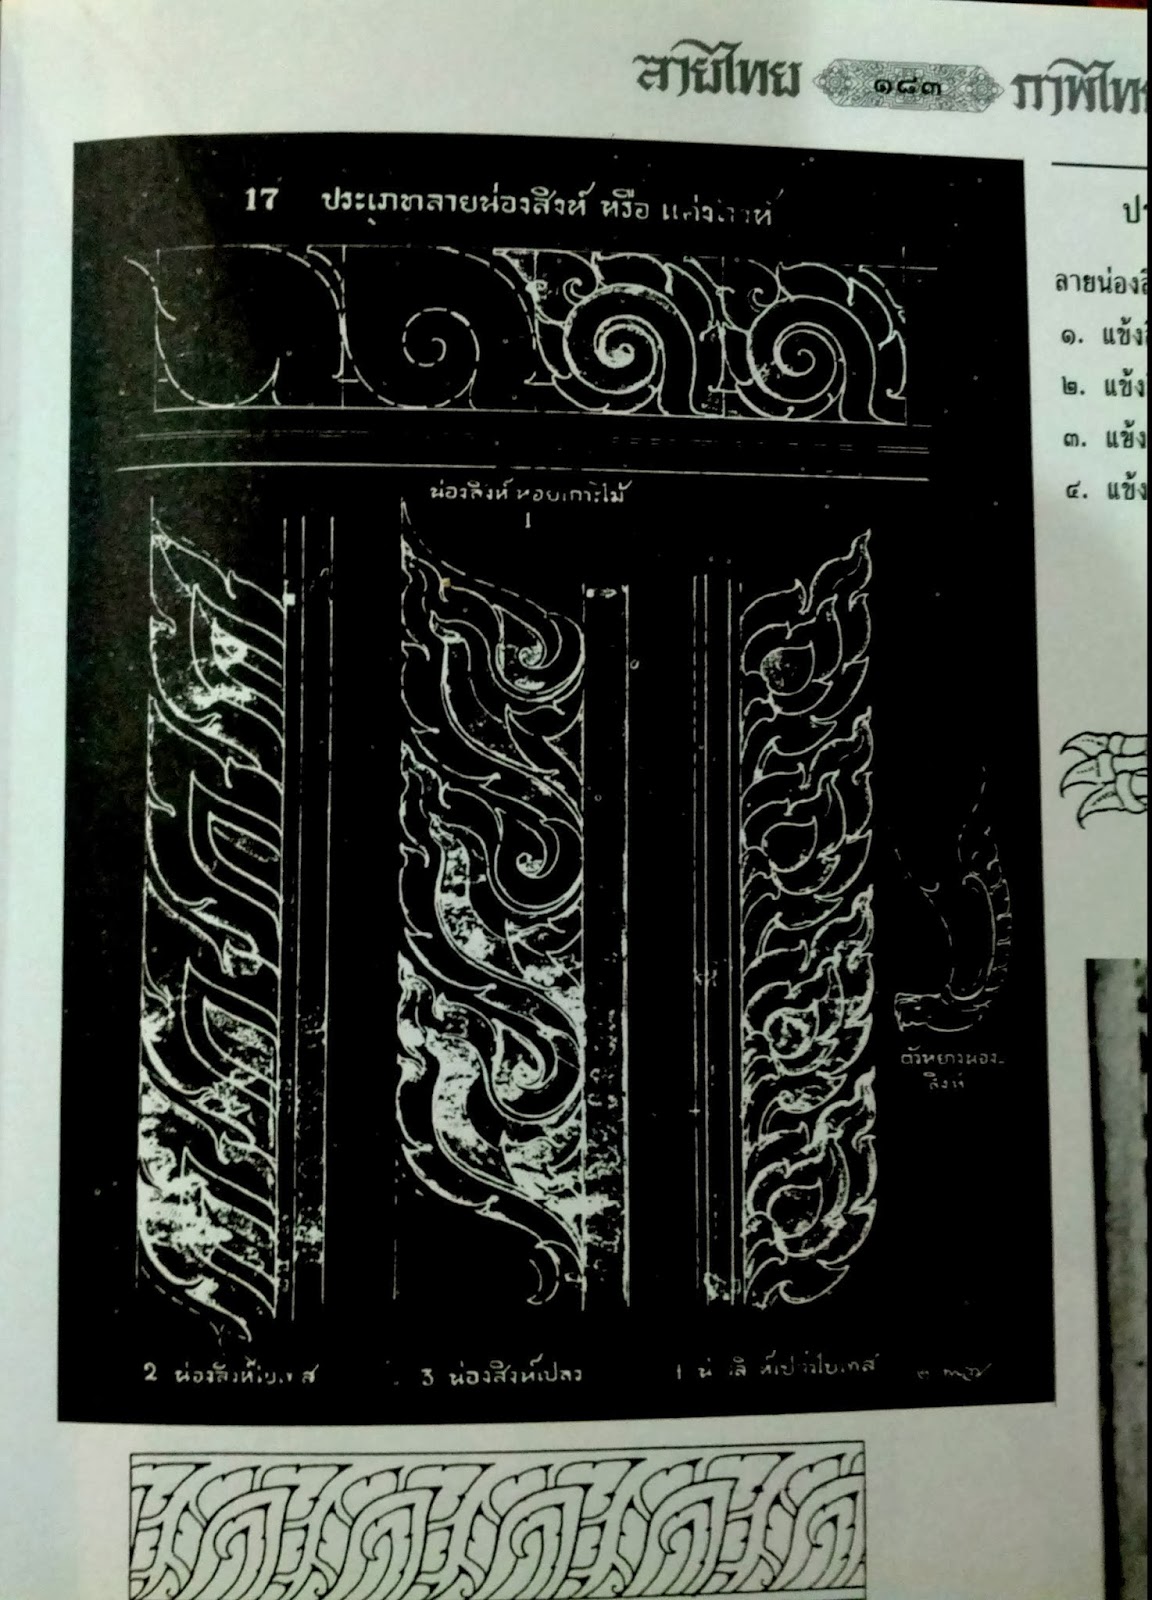 ลายไทย ๑๘๓ ภาพไทย
17 ประเภทลายน่องสิงห์ หรือ แค่งสิงห์
ป
ลายน่องสิ
๑. แข้งสิ
๒. แข้ง
๓. แข้ง
๔. แข้ง
น่องสิงห์ หอยเกาะไม้
1
ตัวหยาวน่อง-
สิงห์
2 น่องสิงห์ใบเทศ
3 น่องสิงห์เปลว